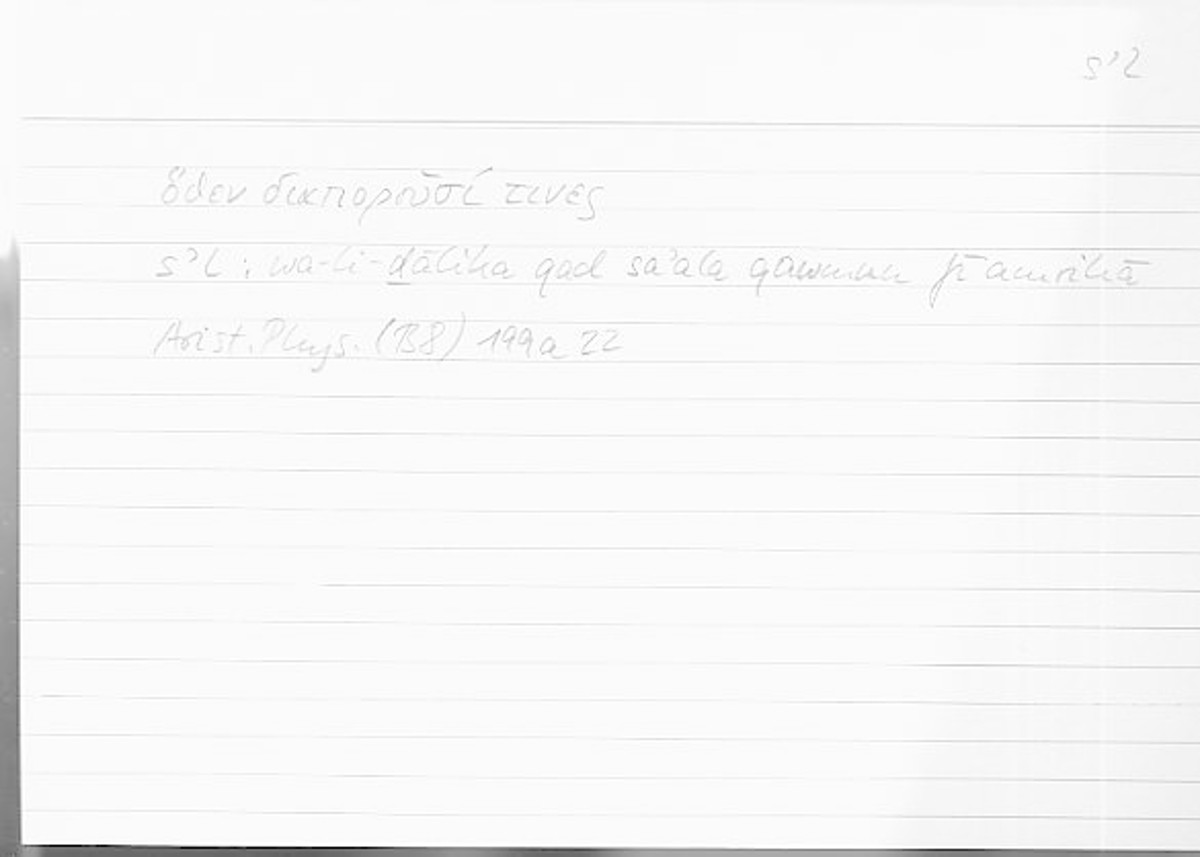 s'l
ὅθεν διαποροῦσί τινες
s'l : wa-li-ḏālika qad sa'ala qawmun fī amrihā
Arist. Phys. (B8) 199a 22